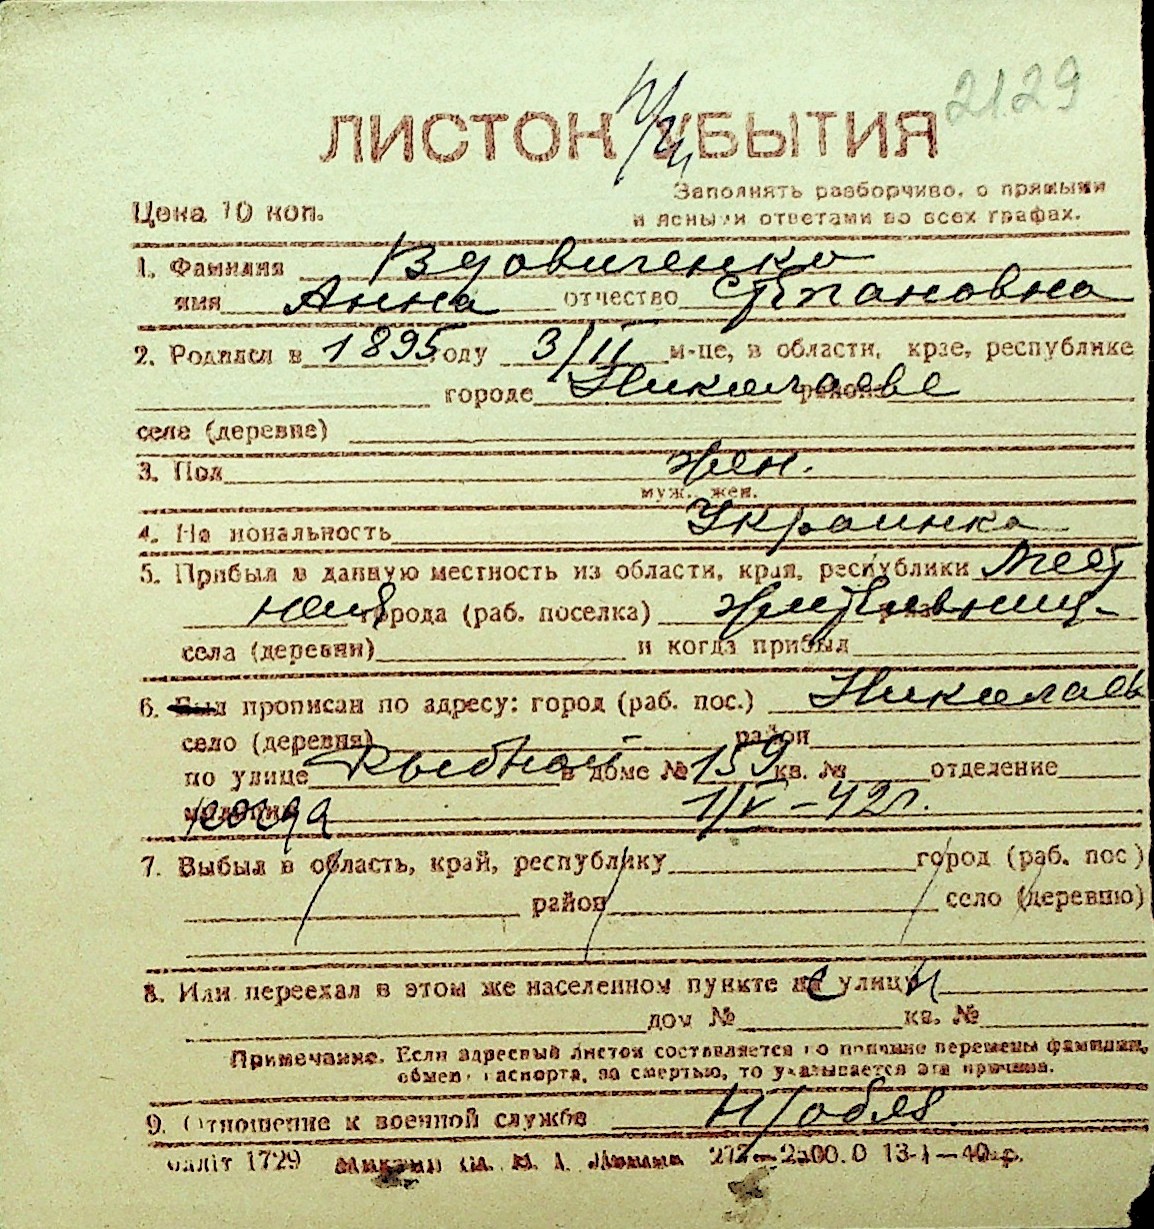 2129
ЛИСТОК УБЫТИЯ
Цена 10 коп.
Заполнять разборчиво, с прямыми
и ясными ответами во всех графах.
1. Фамилия Вдовиченко
имя Анна отчество Степановна
2. Родился в 1895 году 3/II м-це, в области, крае, республике
городе Николаеве района
селе (деревне)
3. Пол жен.
муж. жен.
4. На иональность Украинка
5. Прибыл в данную местность из области, края, республики
города (раб. поселка)
села (деревни) и когда прибыл
6. Был прописан по адресу: город (раб. пос.) Николаев
село (деревня) район
по улице Рыбной в доме № 159 кв. № отделение
милиции когда 1/V-42г.
7. Выбыл в область, край, республику город (раб. пос)
район село (деревню)
8. Или переехал в этом же населенном пункте на улицу
дом № кв. №
Примечание. Если адресный листок составляется по причине перемены фамилии,
обмен паспорта, за смертью, то указывается эта причина.
9. Отношение к военной службе
1729 13-I-40 р.